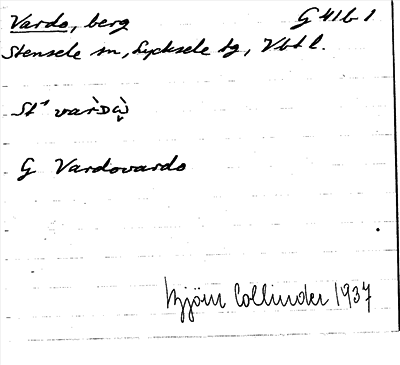 Vardo, berg G 41 b 1
Stensele sn, Lycksele tg, Vbtl.
St¹ vàrᴅ
G Vardovardo
Björn Collinder 1937